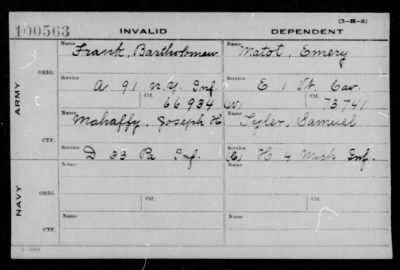 (3-H-5)
100563 INVALID DEPENDENT
Name Name
Frank, Bartholomew Matot, Emery
ORIG. Service Service
A 91 N.Y. Inf. E 1 Vt. Cav.
Ctf. 66934 Ctf. 73741
ARMY
Name Name
Mahaffy, Joseph H Tyler, Samuel
CTF. Service Service
D 33 Pa Inf. H 4 Mich Inf.
Name Name
ORIG. Service Ctf. Service Ctf.
NAVY
Name Name
CTF.